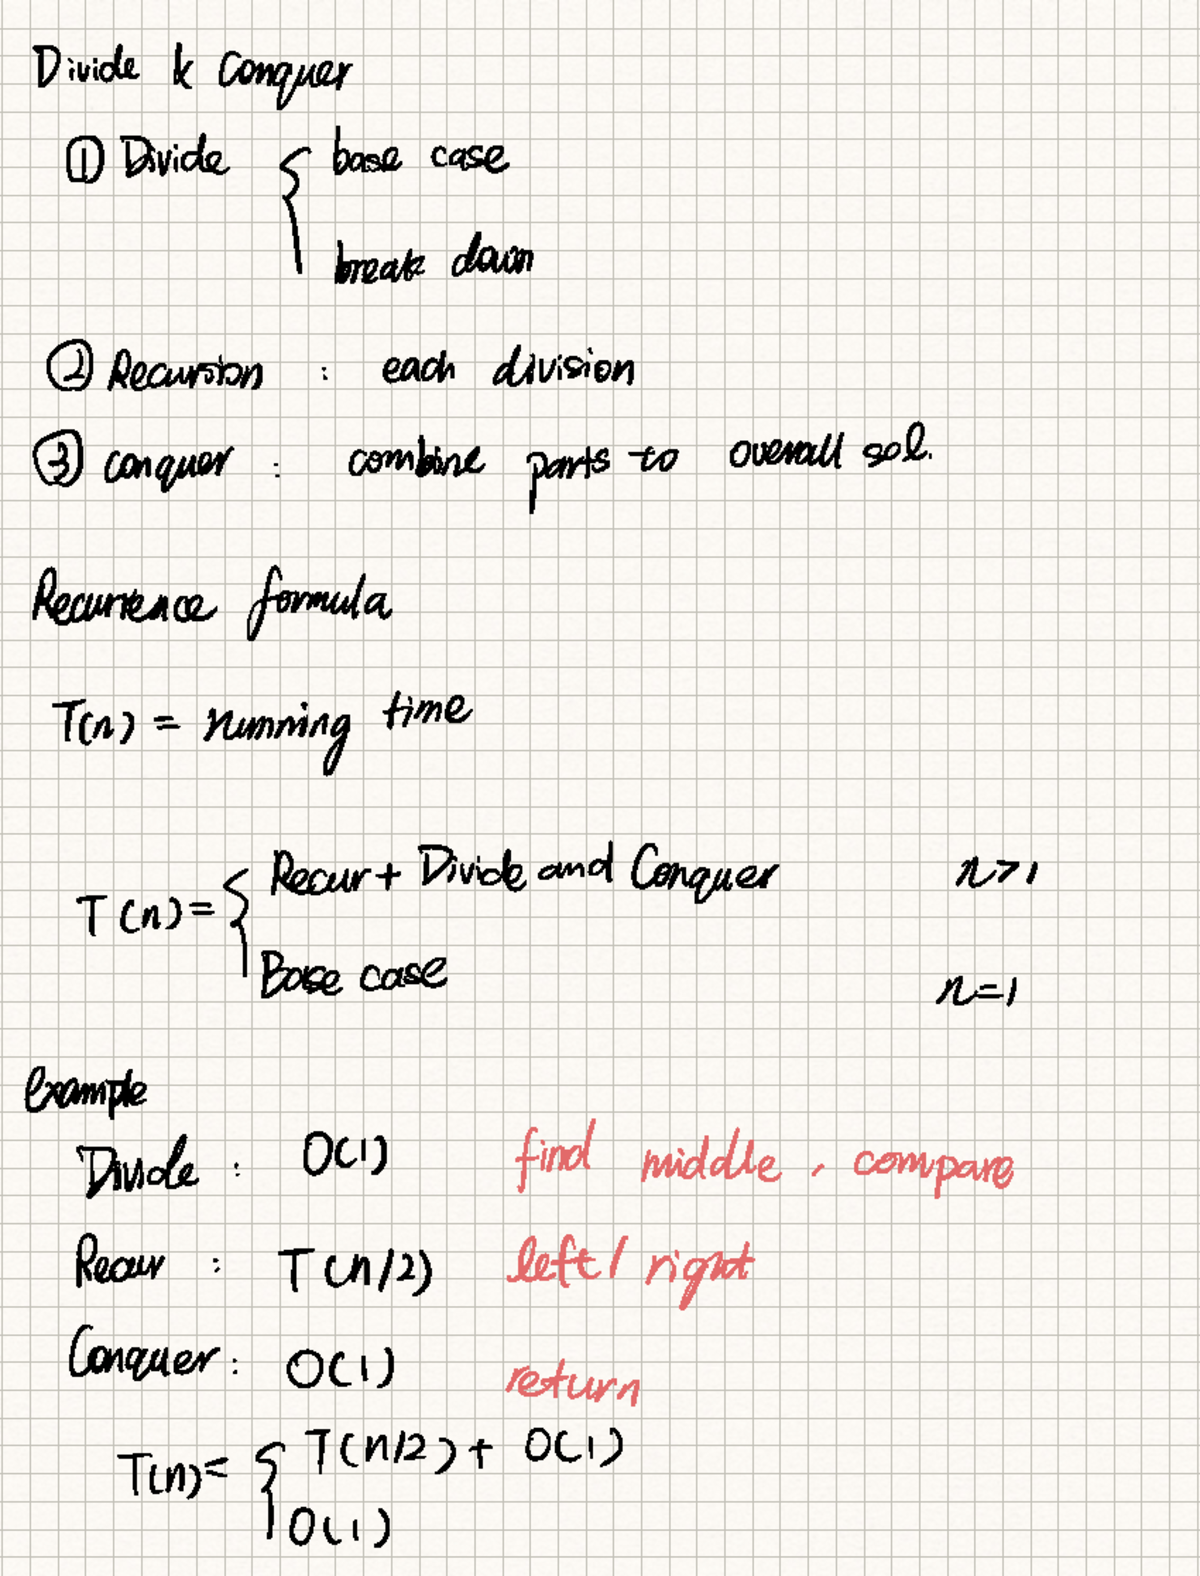 Divide & Conquer
① Divide { base case
break down
② Recursion : each division
③ conquer : combine parts to overall sol.
Recurrence formula
T(n) = running time
T(n) = { Recur + Divide and Conquer n>1
Base case n=1
example
Divide : O(1) find middle, compare
Recur : T(n/2) left/right
Conquer : O(1) return
T(n)= { T(n/2) + O(1)
O(1)